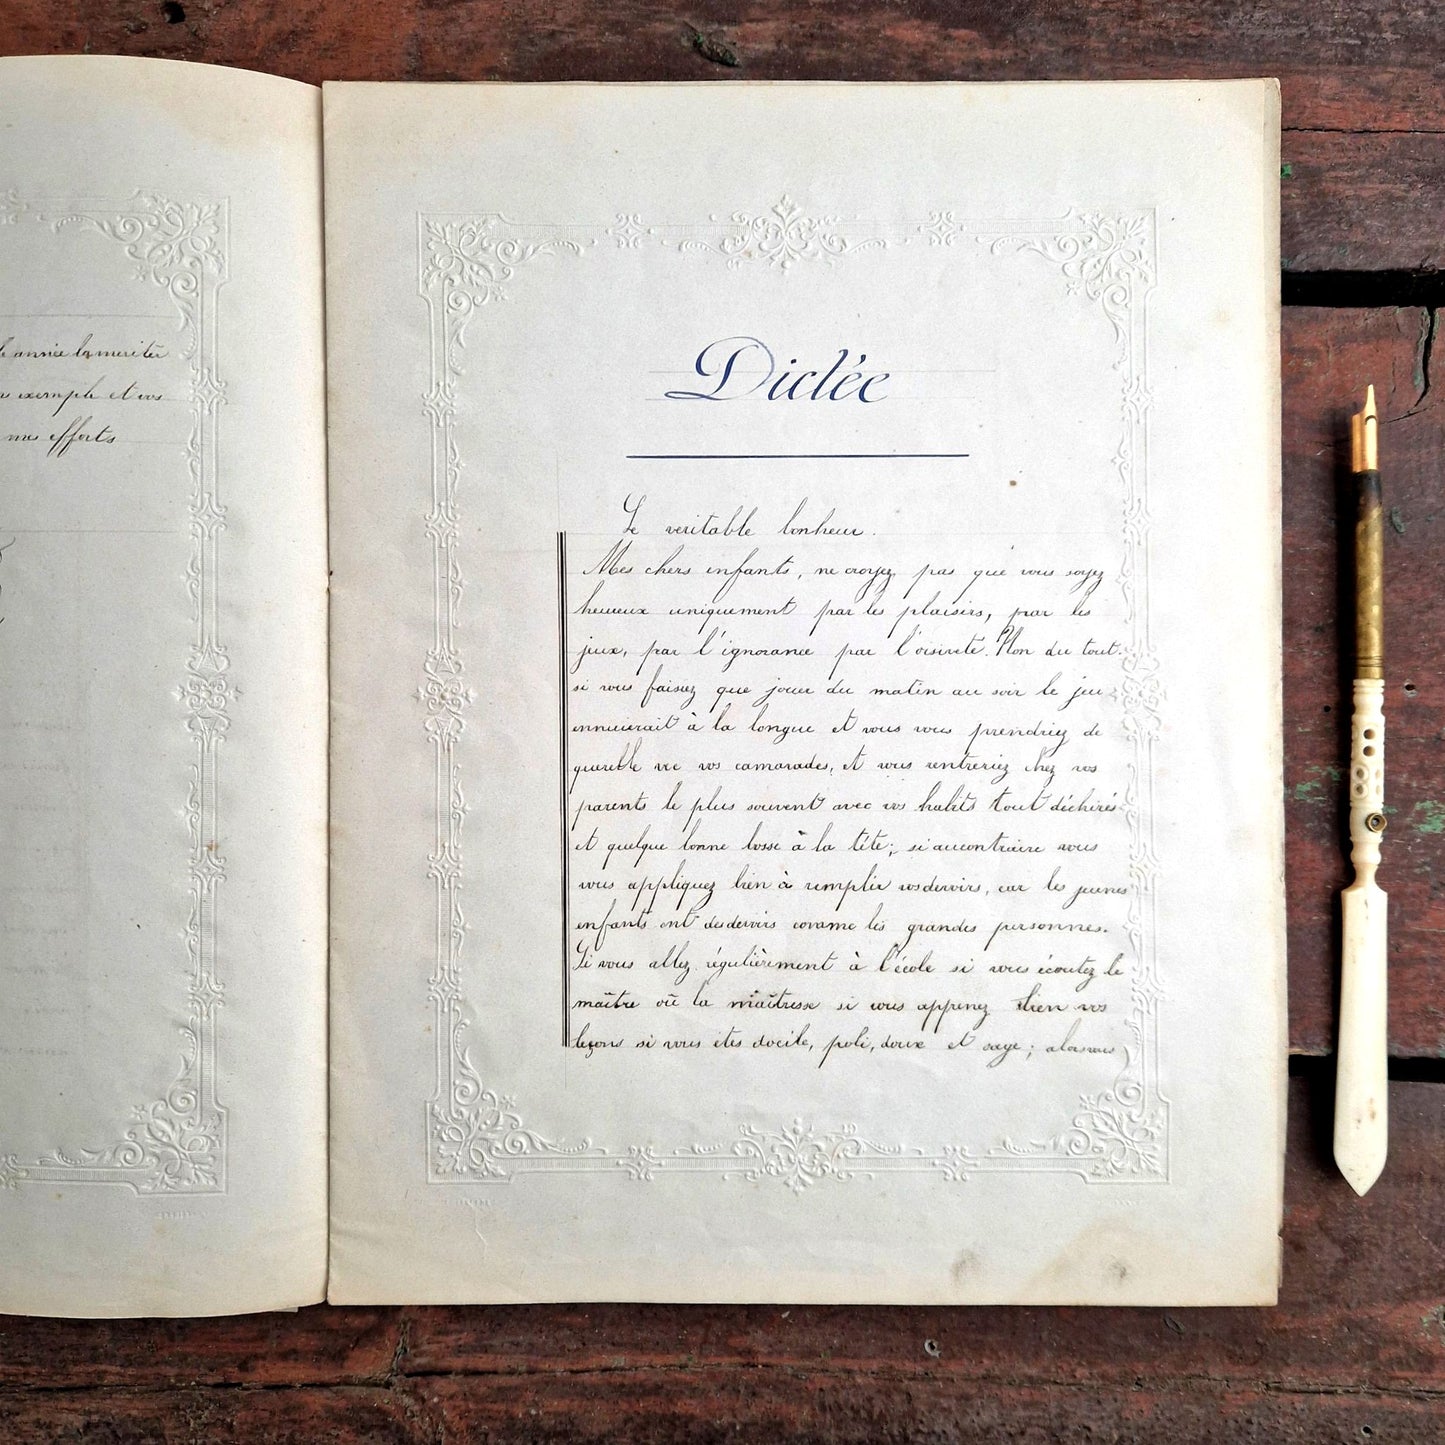 année la meriter
exemple et vos
mes efforts
Dictée
Le veritable bonheur.
Mes chers enfants, ne croyez pas que vous soyez
heureux uniquement par les plaisirs, par les
jeux, par l'ignorance par l'oisivete. Non du tout.
si vous faisiez que jouer du matin au soir le jeu
ennuierait à la longue et vous vous prendriez de
querelle vec vos camarades, et vous rentreriez chez vos
parents le plus souvent avec vos habits tout déchirés
et quelque bonne bosse à la tête; si aucontraire vous
vous appliquez bien à remplir vosdevoirs, car les jeunes
enfants ont desdevoirs comme les grandes personnes.
Si vous allez régulièrement à l'école si vous écoutez le
maître où la maîtresse si vous apprenez bien vos
leçons si vous êtes docile, poli, doux et sage; alorsvous